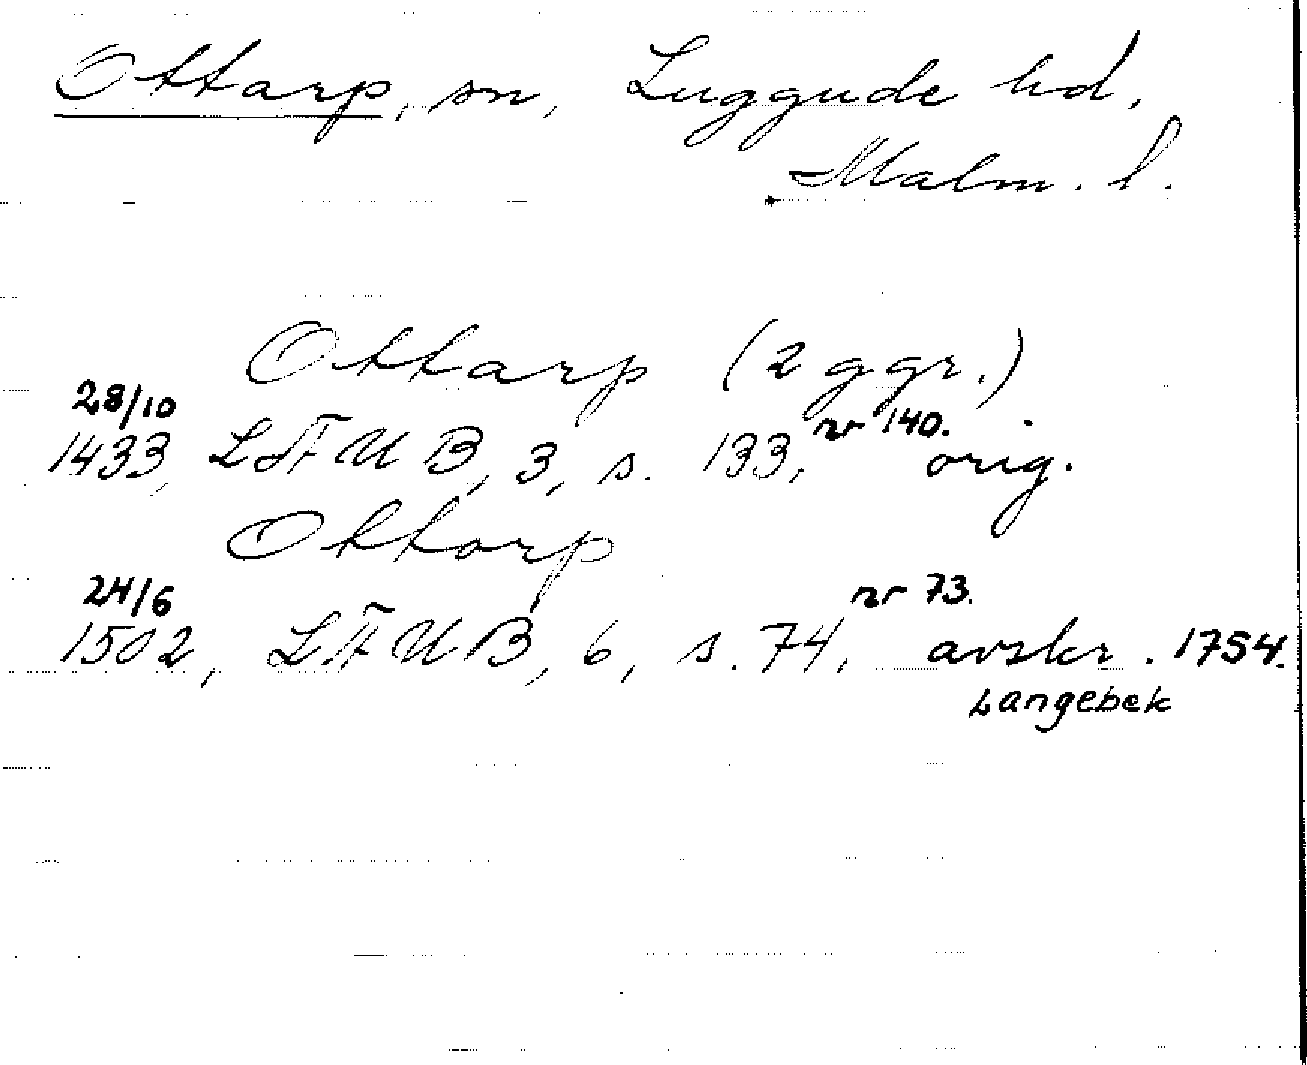 Ottarp, sn, Luggude hd,
Malm. l.
Ottarp (2 ggr.)
28/10
1433, LÄUB, 3, s. 133, nr 140. orig.
Ottorp
24/6
1502, LÄUB, 6, s. 74, nr 73. avskr. 1754.
Langebek